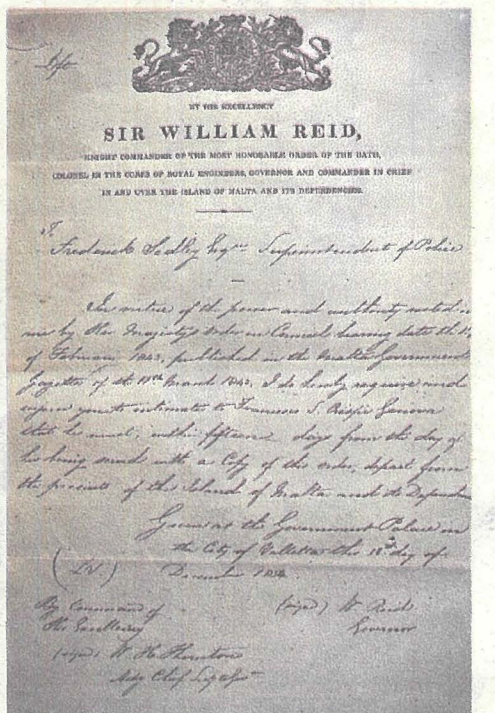 BY HIS EXCELLENCY
SIR WILLIAM REID,
KNIGHT COMMANDER OF THE MOST HONORABLE ORDER OF THE BATH,
COLONEL IN THE CORPS OF ROYAL ENGINEERS, GOVERNOR AND COMMANDER IN CHIEF
IN AND OVER THE ISLAND OF MALTA AND ITS DEPENDENCIES.
To
Frederick Sedley Esqre Superintendent of Police
In virtue of the power and authority vested in
me by Her Majesty's Order in Council bearing date the
of February 1843, published in the Malta Government
Gazette of the March 1843, I do hereby require and
upon you to intimate to Francesco S. Crispi Genova
that he must, within fifteen days from the day of
his being served with a Copy of this order, depart from
the precincts of the Island of Malta and its Dependen
Given at the Government Palace in
the City of Valletta this day of
December
By Command of
His Excellency
(signed) W. Reid
Governor
(signed) W. H. Thornton